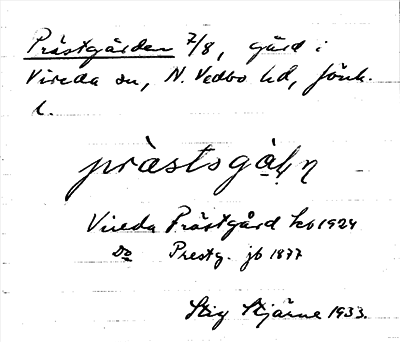 Prästgården 7/8, gård i
Vireda sn, N. Vedbo hd, Jönk.
l.
prästsgạ̊ḷṇ
Vireda Prästgård kb 1924
Do Prestg. jb 1877
Stig Stjärne 1933.